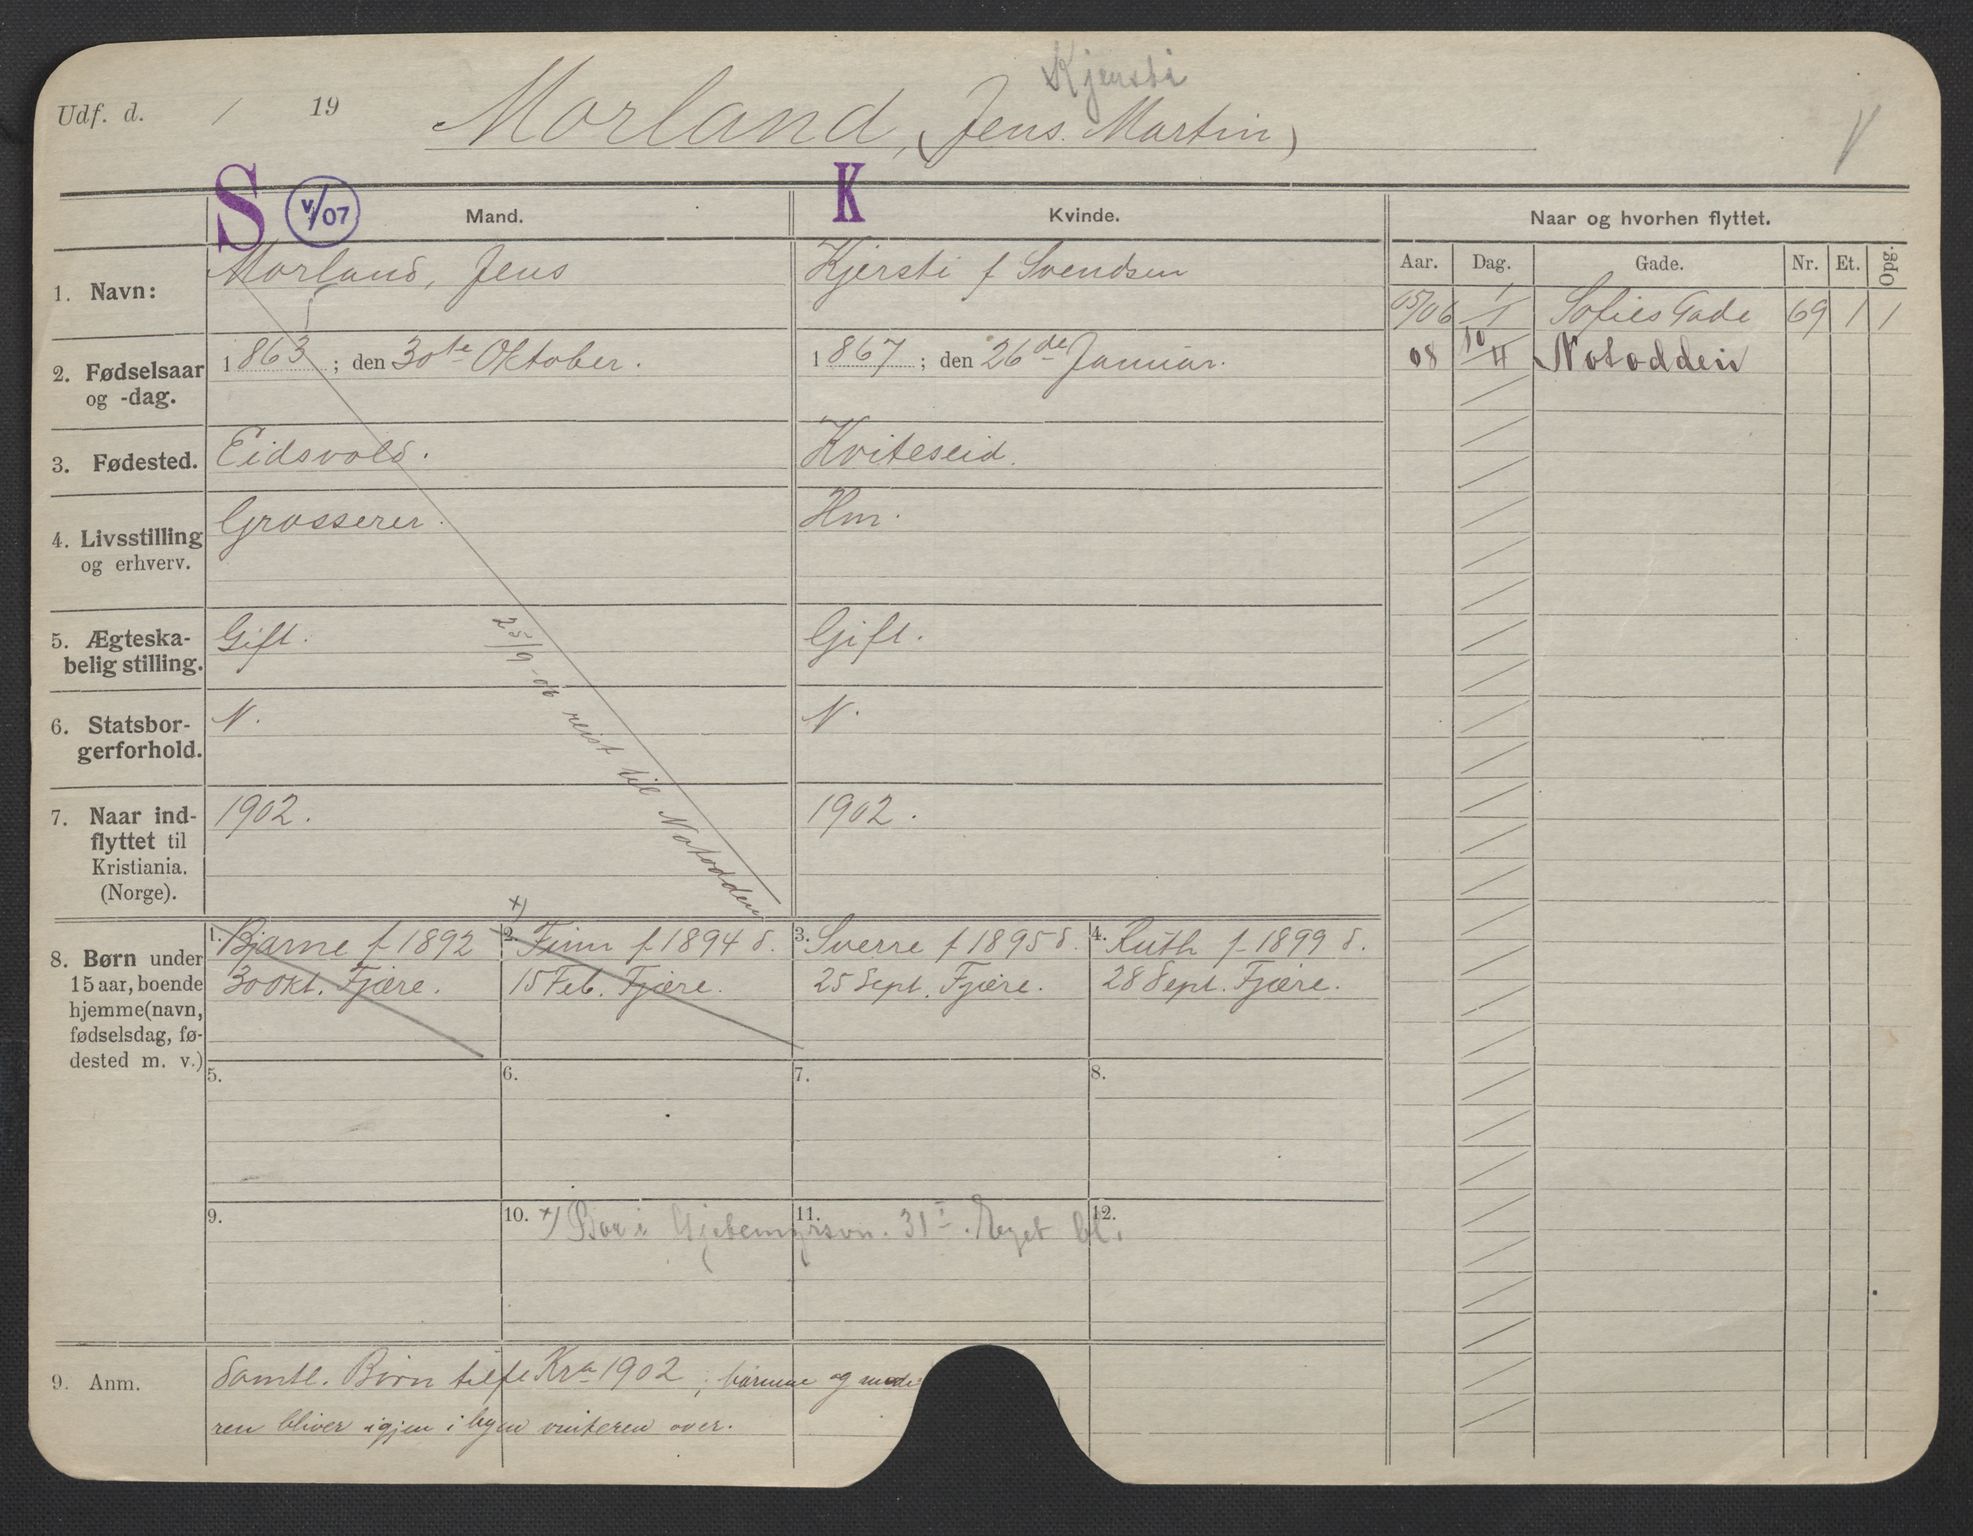 Kjersti
Udf. d. / 19 Morland, (Jens Martin) V
S V/07 Mand. K Kvinde. Naar og hvorhen flyttet.
Aar. Dag. Gade. Nr. Et. Opg.
1. Navn: Morland, Jens Kjersti f Svendsen
05/06 1/1 Sofies Gade 69 1 1
08 10/4 Notodden
2. Fødselsaar og -dag. 1863; den 30te Oktober. 1867; den 26de Januar.
3. Fødested. Eidsvold. Kviteseid.
4. Livsstilling og erhverv. Grosserer. Hm.
5. Ægteska-
belig stilling. Gift. Gift.
25/9-06 reist til Notodden
6. Statsbor-
gerforhold. N. N.
7. Naar ind-
flyttet til
Kristiania.
(Norge). 1902. 1902.
8. Børn under
15 aar, boende
hjemme (navn,
fødselsdag, fø-
dested m. v.)
1. Bjarne f 1892
30 Okt. Fjære.
+)
2. Finn f 1894 d.
15 Feb. Fjære.
3. Sverre f 1895 d.
25 Sept. Fjære.
4. Ruth f 1899 d.
28 Sept. Fjære.
5. 6. 7. 8.
9. 10. 11. 12.
+) Bor i Gjetemyrsvn. 31 I. Eget bl.
9. Anm. Samtl. Børn tilfl Kra 1902; børnene og mode-
ren bliver igjen i byen vinteren over.